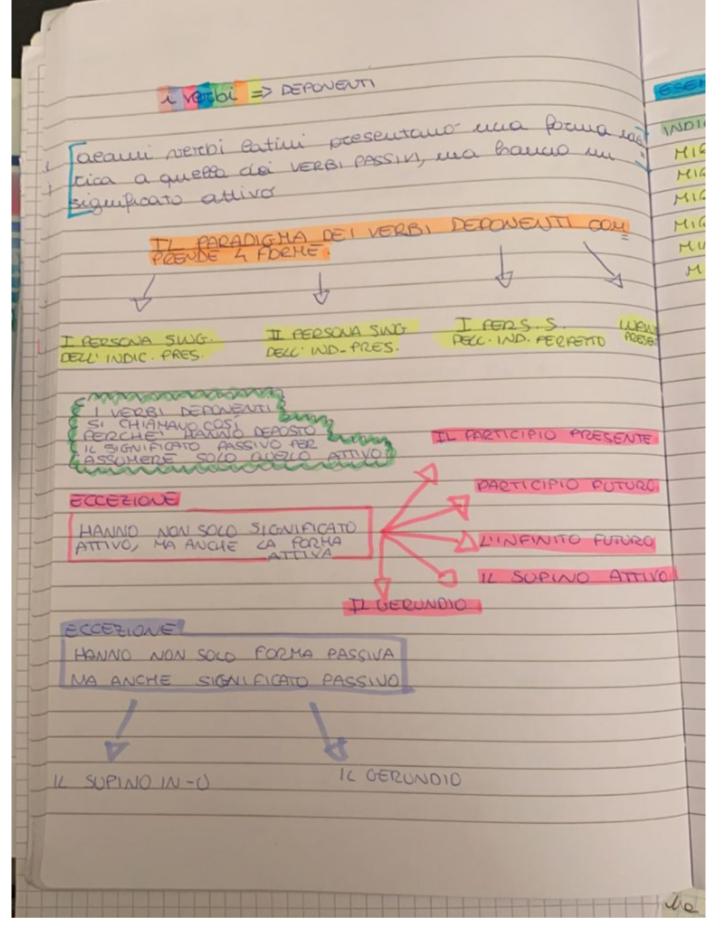 i verbi => DEPONENTI
alcuni verbi latini presentano una forma iden
tica a quella dei VERBI PASSIVI, ma hanno un
significato attivo
IL PARADIGMA DEI VERBI DEPONENTI COM
PRENDE 4 FORME
I PERSONA SING.
DELL'INDIC. PRES.
II PERSONA SING
DELL'IND. PRES.
I PERS. S.
DELL. IND. PERFETTO
I VERBI DEPONENTI
SI CHIAMANO COSÌ
PERCHÉ HANNO DEPOSTO
IL SIGNIFICATO PASSIVO PER
ASSUMERE SOLO QUELLO ATTIVO
IL PARTICIPIO PRESENTE
PARTICIPIO FUTURO
ECCEZIONE
HANNO NON SOLO SIGNIFICATO
ATTIVO, MA ANCHE LA FORMA
ATTIVA
L'INFINITO FUTURO
IL SUPINO ATTIVO
IL GERUNDIO
ECCEZIONE
HANNO NON SOLO FORMA PASSIVA
MA ANCHE SIGNIFICATO PASSIVO
IL SUPINO IN-U
IL GERUNDIO
ESEM
INDI
MIG
MIG
MIG
MIG
M